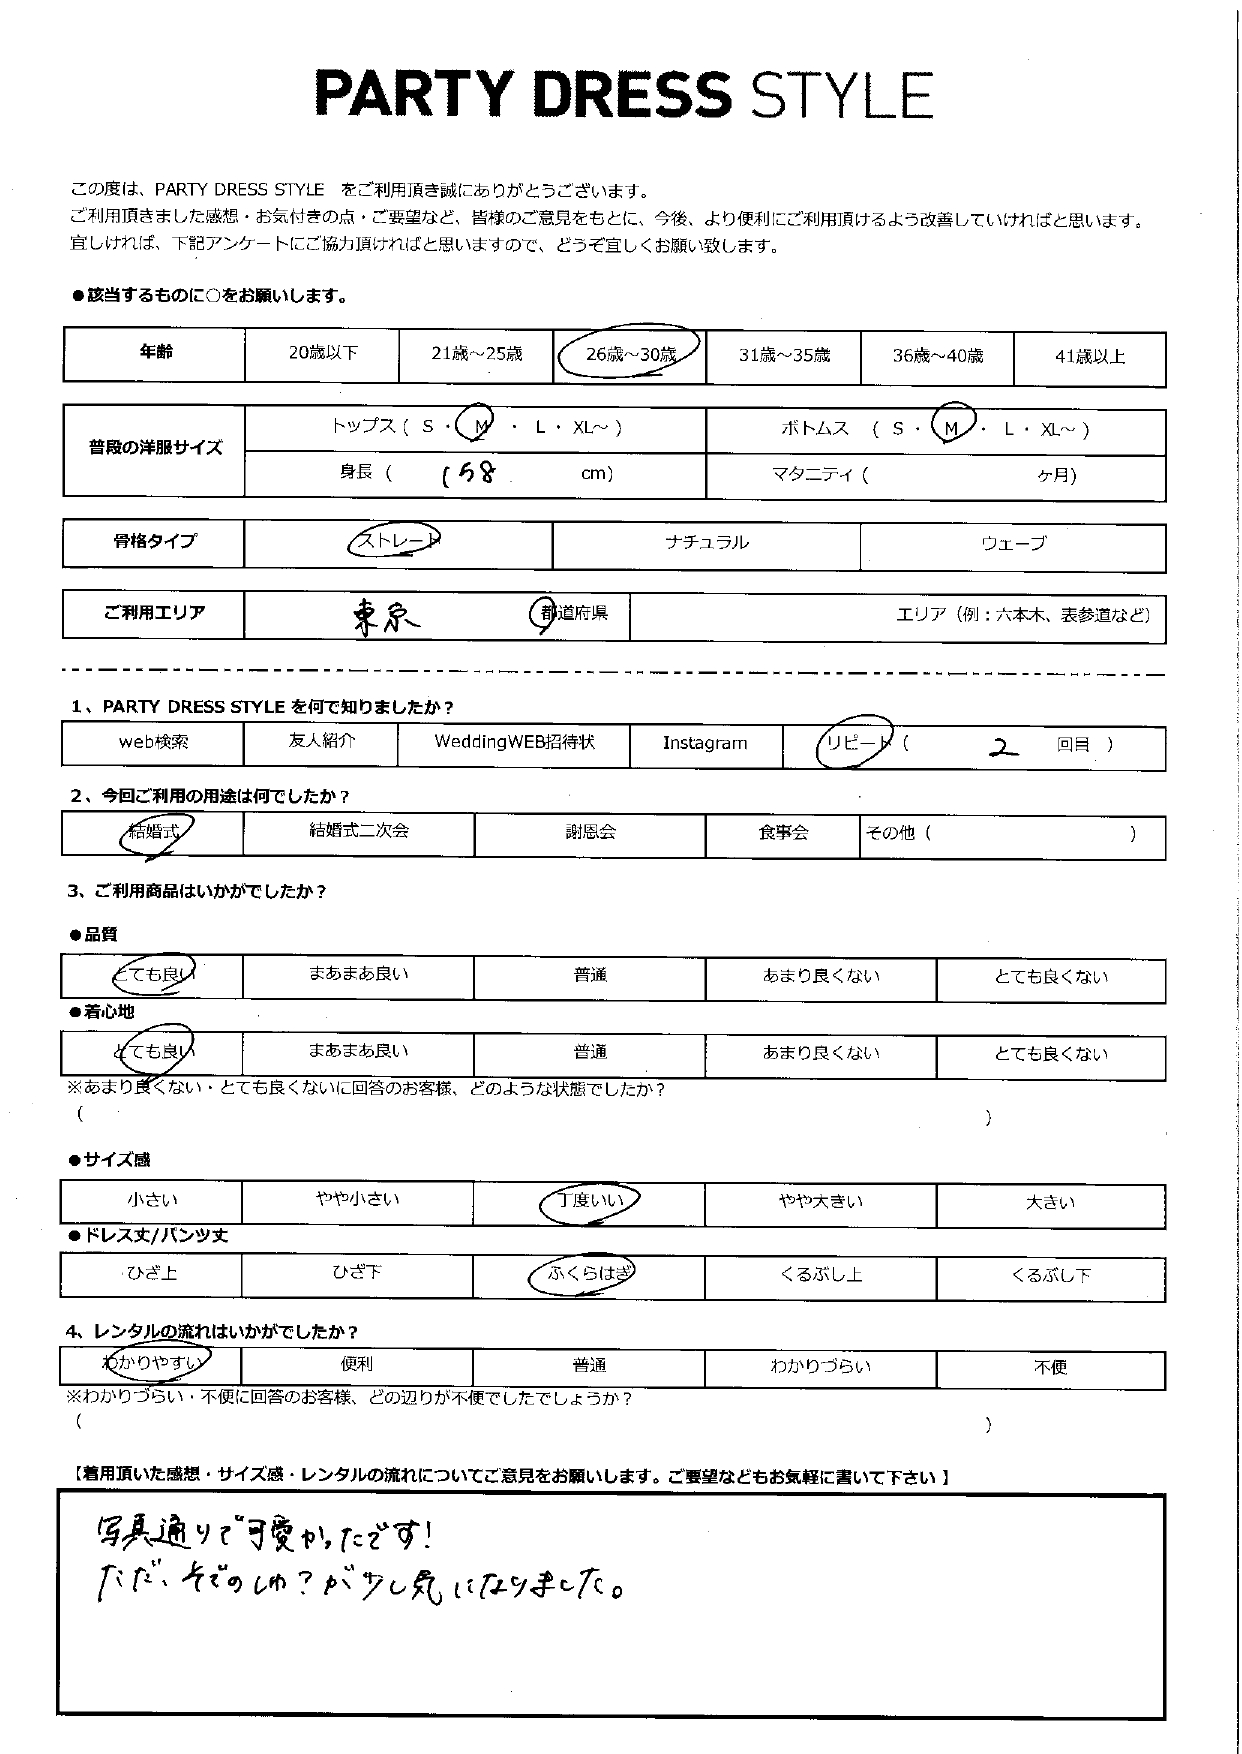 PARTY DRESS STYLE
この度は、PARTY DRESS STYLE をご利用頂き誠にありがとうございます。
ご利用頂きました感想・お気付きの点・ご要望など、皆様のご意見をもとに、今後、より便利にご利用頂けるよう改善していければと思います。
宜しければ、下記アンケートにご協力頂ければと思いますので、どうぞ宜しくお願い致します。
●該当するものに○をお願いします。
年齢 20歳以下 21歳～25歳 26歳～30歳 31歳～35歳 36歳～40歳 41歳以上
普段の洋服サイズ トップス ( S ・ M ・ L ・ XL～ ) ボトムス ( S ・ M ・ L ・ XL～ )
身長 ( 158 cm) マタニティ ( ヶ月)
骨格タイプ ストレート ナチュラル ウェーブ
ご利用エリア 東京 都道府県 エリア（例：六本木、表参道など）
1、PARTY DRESS STYLE を何で知りましたか？
web検索 友人紹介 WeddingWEB招待状 Instagram リピート ( 2 回目 )
2、今回ご利用の用途は何でしたか？
結婚式 結婚式二次会 謝恩会 食事会 その他 ( )
3、ご利用商品はいかがでしたか？
●品質
とても良い まあまあ良い 普通 あまり良くない とても良くない
●着心地
とても良い まあまあ良い 普通 あまり良くない とても良くない
※あまり良くない・とても良くないに回答のお客様、どのような状態でしたか？
( )
●サイズ感
小さい やや小さい 丁度いい やや大きい 大きい
●ドレス丈/パンツ丈
ひざ上 ひざ下 ふくらはぎ くるぶし上 くるぶし下
4、レンタルの流れはいかがでしたか？
わかりやすい 便利 普通 わかりづらい 不便
※わかりづらい・不便に回答のお客様、どの辺りが不便でしたでしょうか？
( )
【着用頂いた感想・サイズ感・レンタルの流れについてご意見をお願いします。ご要望などもお気軽に書いて下さい 】
写真通りで可愛かったです！
ただ、そでのしわ？が少し気になりました。